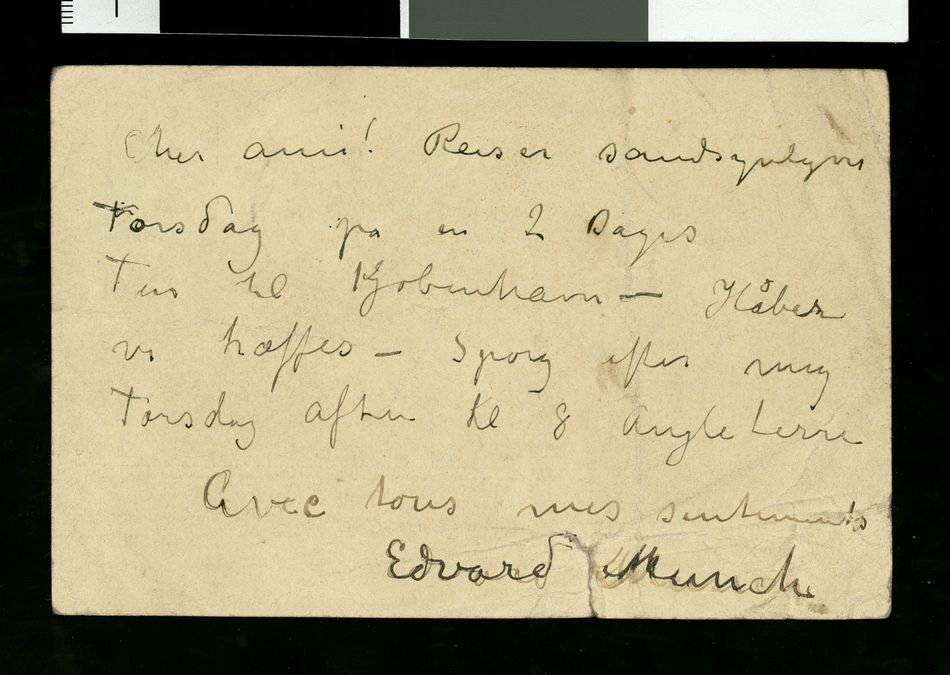 Cher ami! Reiser sandsynligvis
Torsdag på en 2 Dages
Tur til Kjøbenhavn – Håber
vi træffes – Spørg efter mig
Torsdag aften Kl 8 Angleterre
Avec tous mes sentiments
Edvard Munch